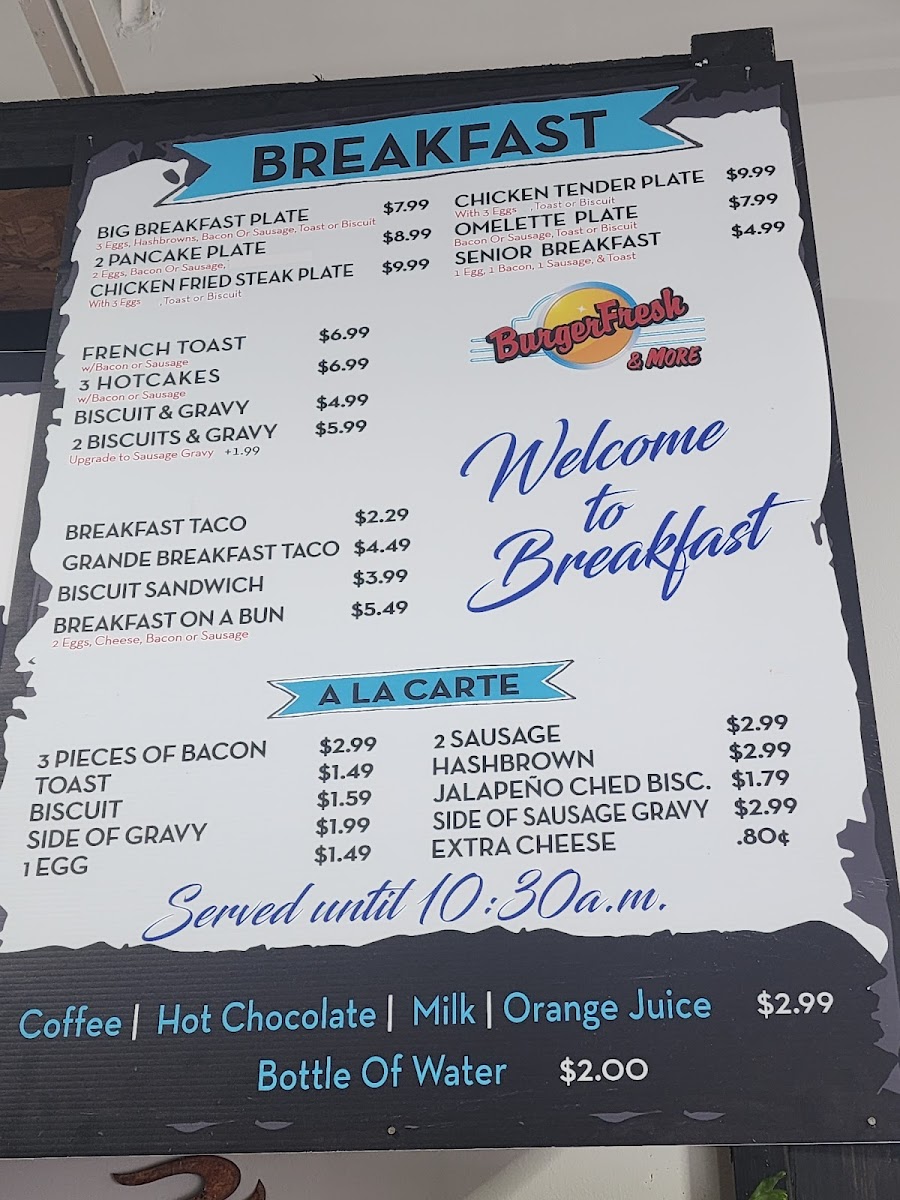 BREAKFAST
BIG BREAKFAST PLATE $7.99
3 Eggs, Hashbrowns, Bacon Or Sausage, Toast or Biscuit
2 PANCAKE PLATE $8.99
2 Eggs, Bacon Or Sausage,
CHICKEN FRIED STEAK PLATE $9.99
With 3 Eggs , Toast or Biscuit
CHICKEN TENDER PLATE $9.99
With 3 Eggs , Toast or Biscuit
OMELETTE PLATE $7.99
Bacon Or Sausage, Toast or Biscuit
SENIOR BREAKFAST $4.99
1 Egg, 1 Bacon, 1 Sausage, & Toast
BurgerFresh
& MORE
FRENCH TOAST $6.99
w/Bacon or Sausage
3 HOTCAKES $6.99
w/Bacon or Sausage
BISCUIT & GRAVY $4.99
2 BISCUITS & GRAVY $5.99
Upgrade to Sausage Gravy +1.99
Welcome
to
Breakfast
BREAKFAST TACO $2.29
GRANDE BREAKFAST TACO $4.49
BISCUIT SANDWICH $3.99
BREAKFAST ON A BUN $5.49
2 Eggs, Cheese, Bacon or Sausage
A LA CARTE
3 PIECES OF BACON $2.99
TOAST $1.49
BISCUIT $1.59
SIDE OF GRAVY $1.99
1 EGG $1.49
2 SAUSAGE $2.99
HASHBROWN $2.99
JALAPEÑO CHED BISC. $1.79
SIDE OF SAUSAGE GRAVY $2.99
EXTRA CHEESE .80¢
Served until 10:30a.m.
Coffee | Hot Chocolate | Milk | Orange Juice $2.99
Bottle Of Water $2.00